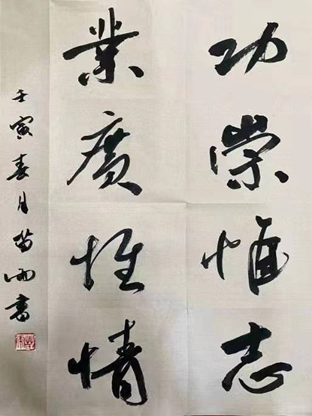 功崇惟志
業廣惟情
壬寅春月苗雨書